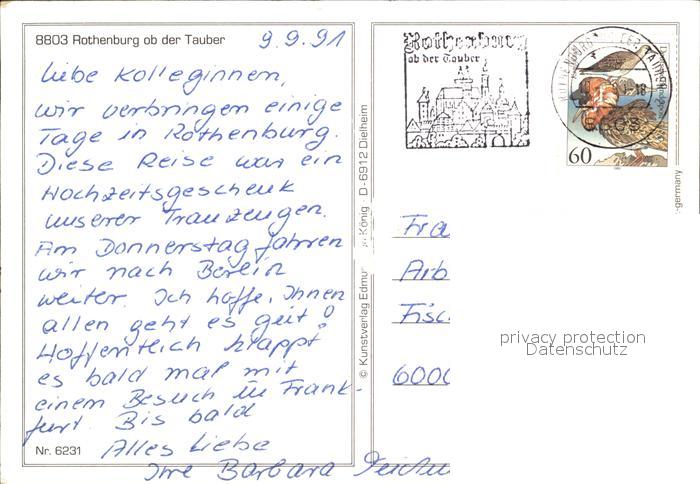 8803 Rothenburg ob der Tauber
9.9.91
Liebe Kolleginnen,
wir verbringen einige
Tage in Rothenburg.
Diese Reise war ein
Hochzeitsgeschenk
unserer Trauzeugen.
Am Donnerstag fahren
wir nach Berlin
weiter. Ich hoffe, Ihnen
allen geht es gut!
Hoffentlich klappt
es bald mal mit
einem Besuch in Frank-
furt. Bis bald
Alles Liebe
Ihre Barbara
Nr. 6231
© Kunstverlag Edmu König D-6912 Dielheim
Rothenburg
ob der Tauber
60
Fra
Arb
Fisc
6000
privacy protection
Datenschutz
-germany